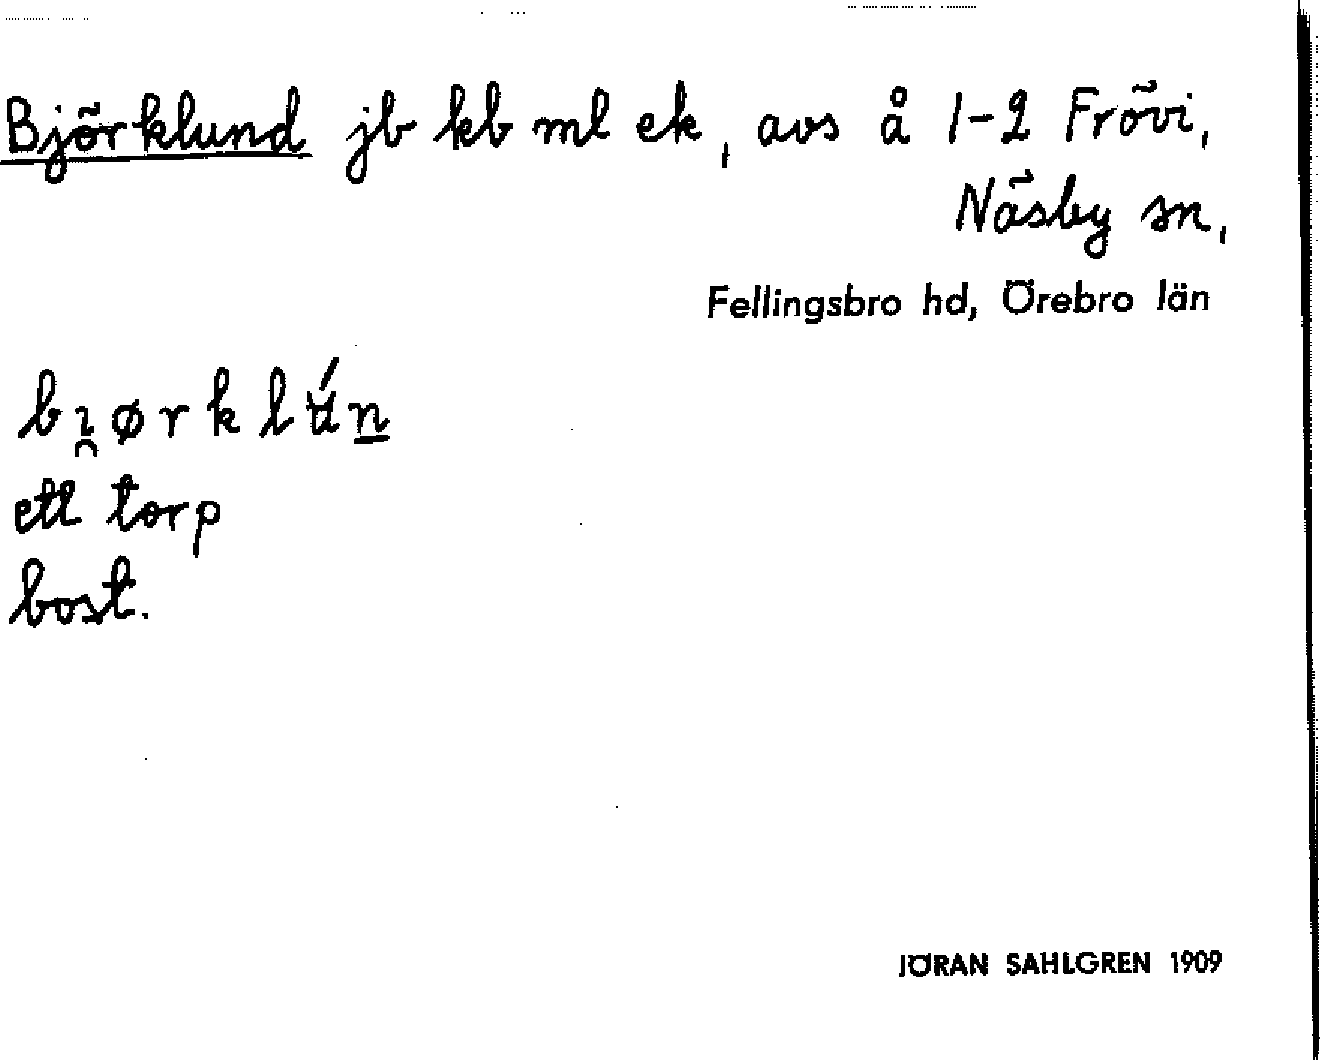 Björklund jb kb ml ek, avs å 1-2 Frövi,
Näsby sn,
Fellingsbro hd, Örebro län
bı̯ørklún̲
ett torp
bost.
JÖRAN SAHLGREN 1909